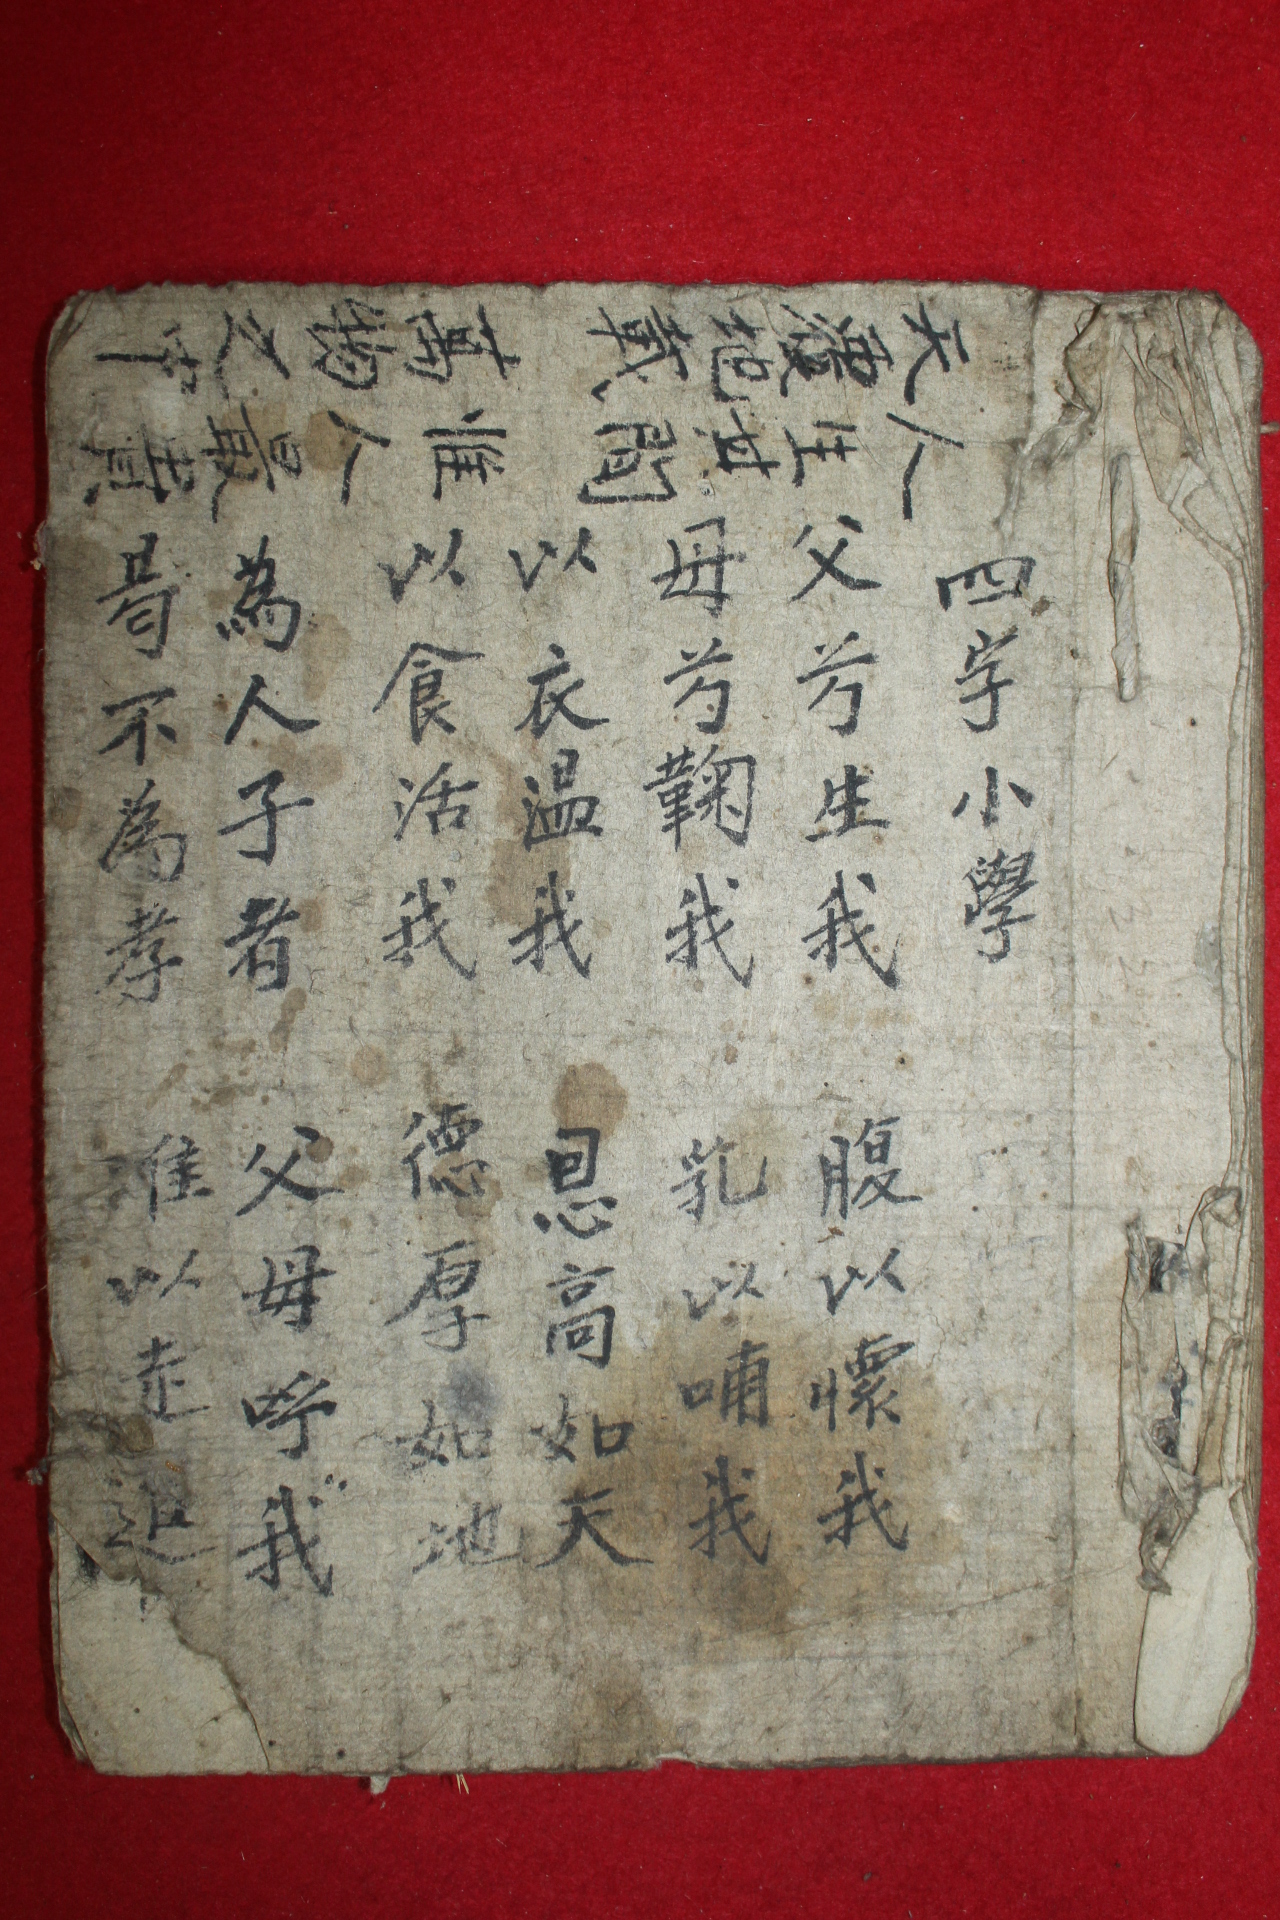 天覆地載 萬物之中
人生世間 惟人最貴
四字小學
父兮生我 腹以懷我
母兮鞠我 乳以哺我
以衣温我 恩高如天
以食活我 德厚如地
為人子者 父母呼我
曷不為孝 唯以走追